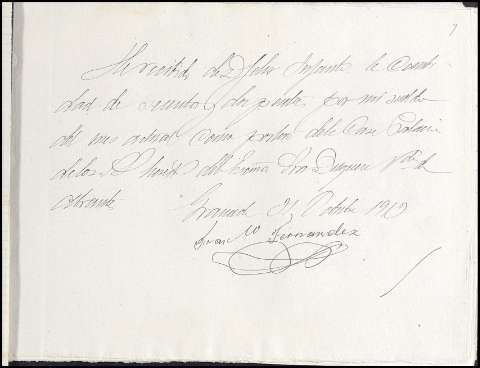 He recibido de D. Julio Infante la Canti-
dad de ciento y dos pesetas por mi sueldo
del mes actual como portero de la Casa Palacio
de los Excma Sra Duquesa Vda de
Abrantes
Granada 31 Octubre 1919
Juan Mª Fernandez